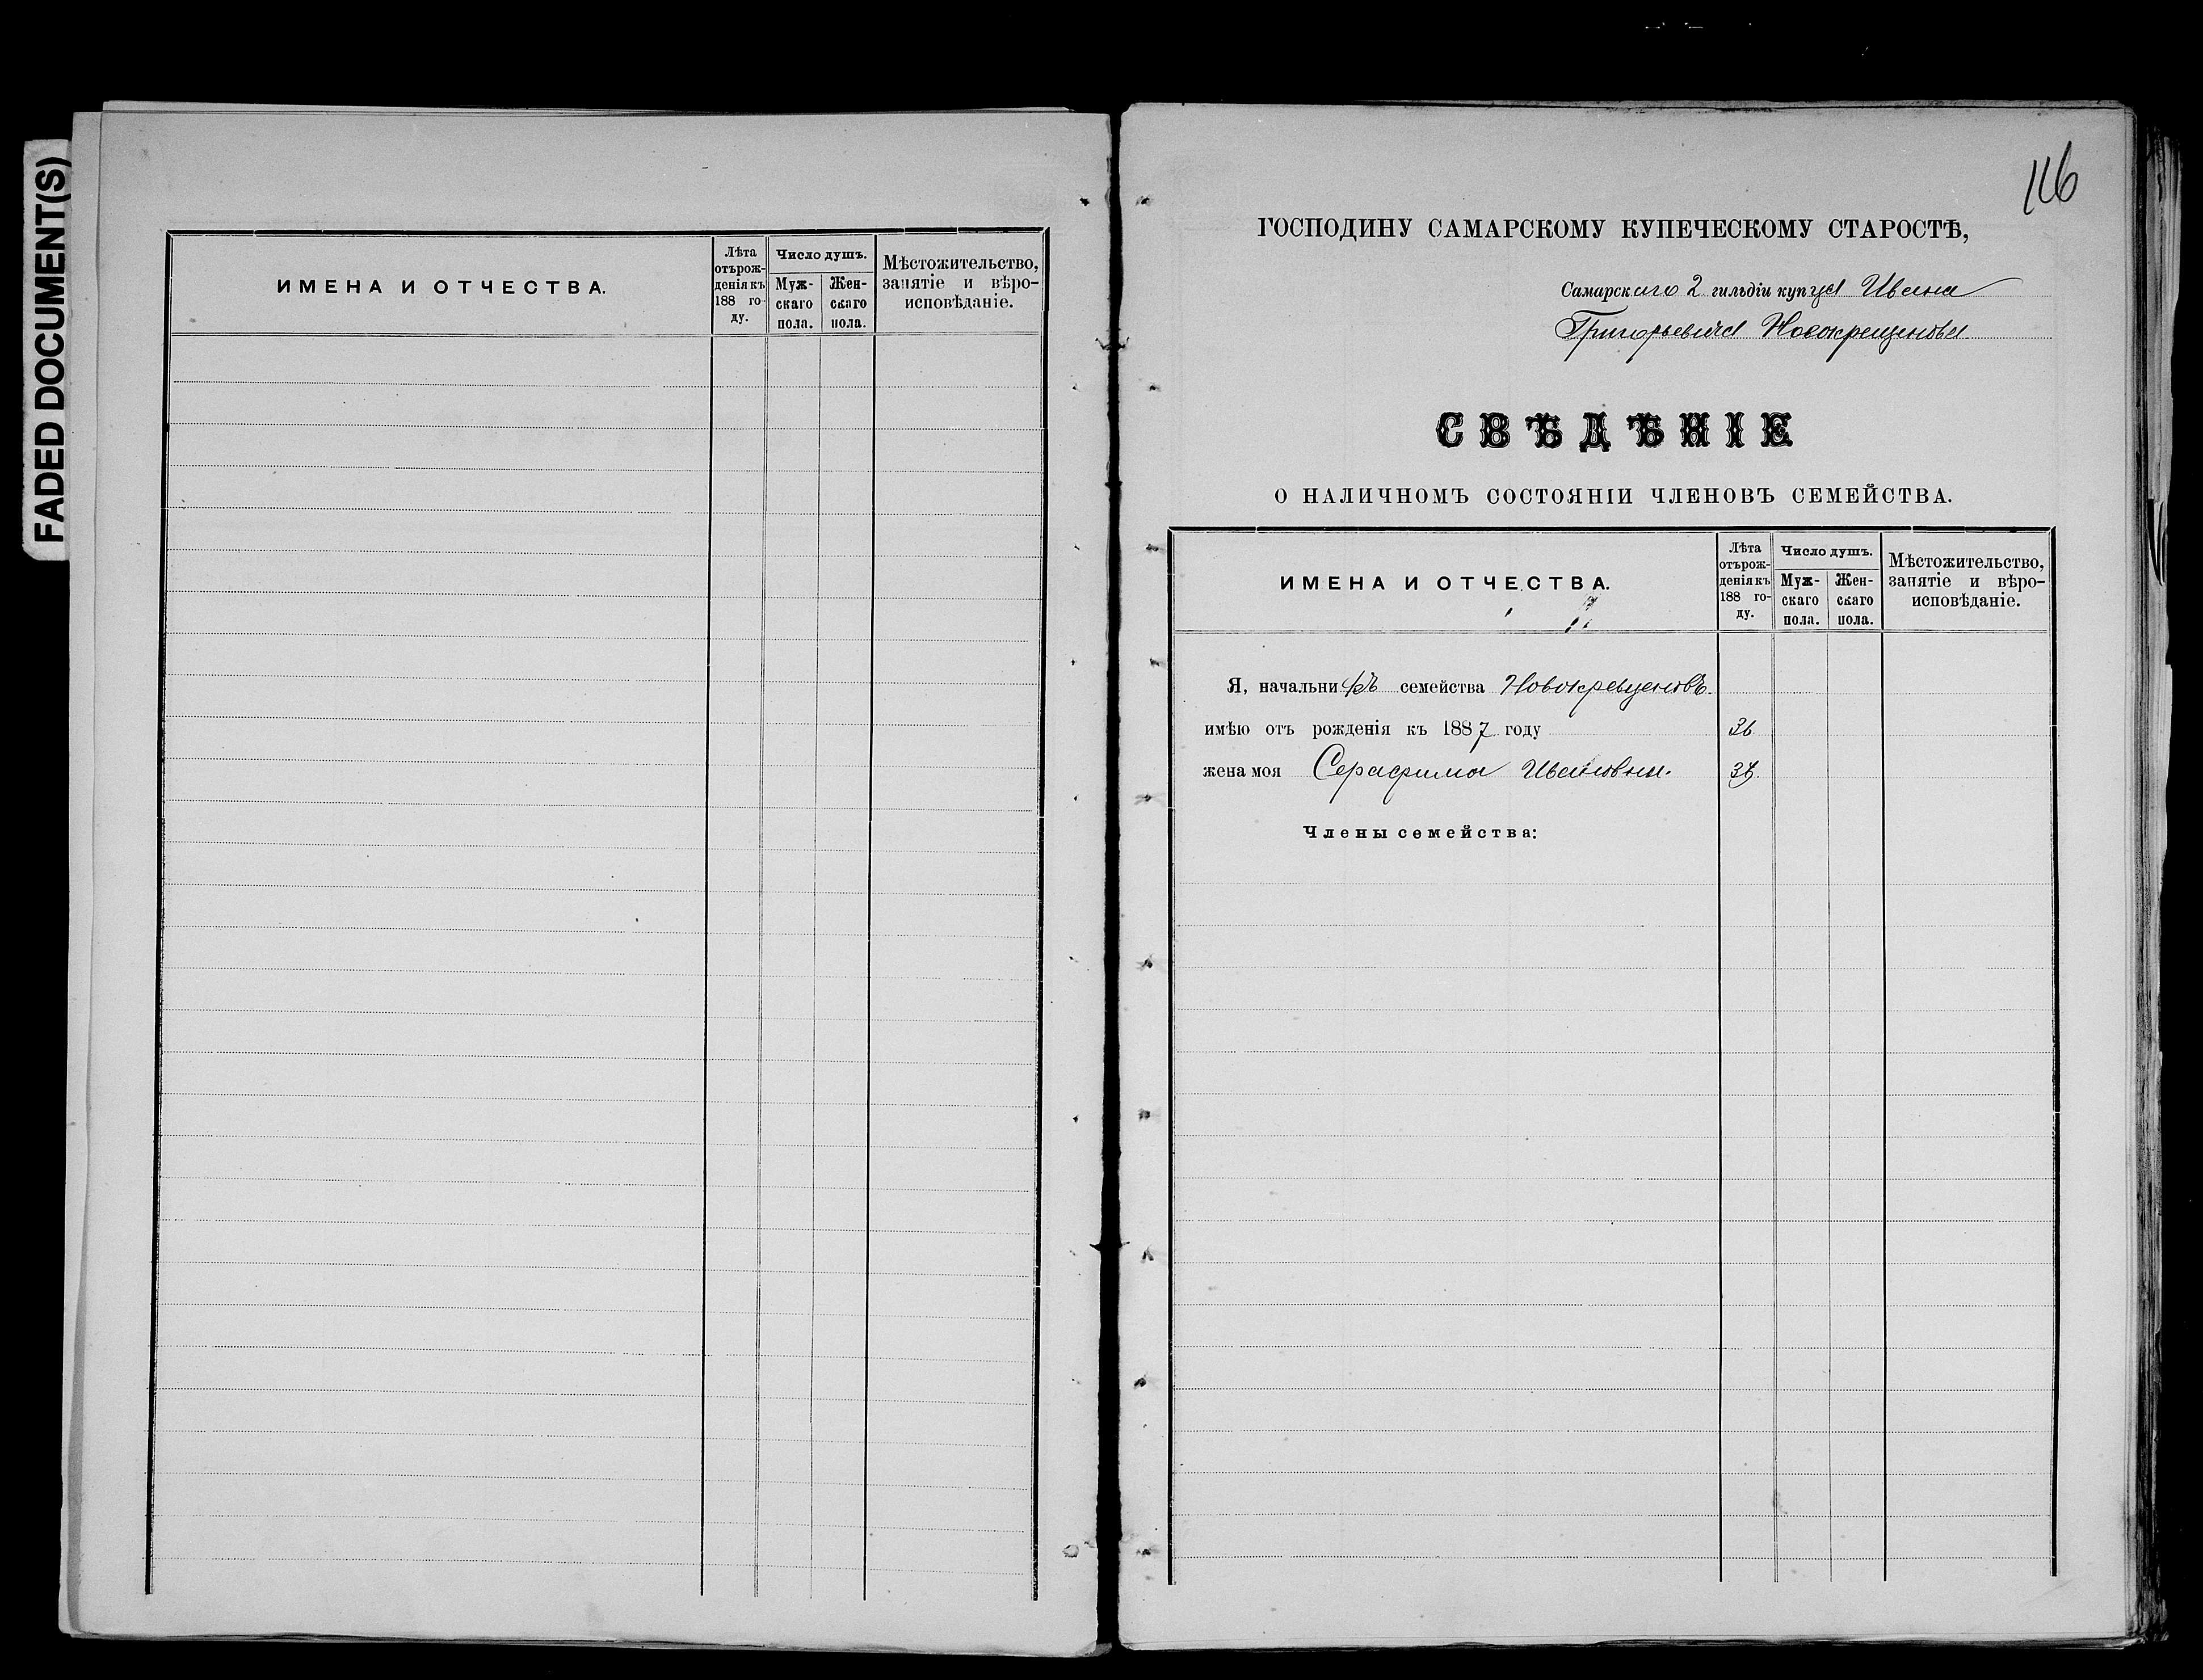 FADED DOCUMENT(S)
ИМЕНА И ОТЧЕСТВА.
Лѣта отърож-денія къ 188 го-ду.
Число душъ.
Муж-скаго пола.
Жен-скаго пола.
Мѣстожительство, занятіе и вѣро-исповѣданіе.
116
ГОСПОДИНУ САМАРСКОМУ КУПЕЧЕСКОМУ СТАРОСТѢ,
Самарскаго 2 гильдіи купца Ивана
Григорьевича Новокрещенова
СВѢДѢНІЕ
О НАЛИЧНОМЪ СОСТОЯНІИ ЧЛЕНОВЪ СЕМЕЙСТВА.
ИМЕНА И ОТЧЕСТВА.
Лѣта отърож-денія къ 188 го-ду.
Число душъ.
Муж-скаго пола.
Жен-скаго пола.
Мѣстожительство, занятіе и вѣро-исповѣданіе.
Я, начальникъ семейства Новокрещеновъ.
имѣю отъ рожденія къ 1887 году 36
жена моя Серафима Ивановна.
Члены семейства: